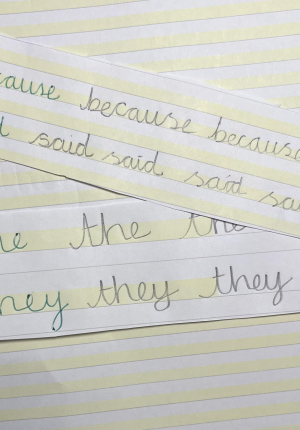 cause because because
said said said sai
the the the
hey they they